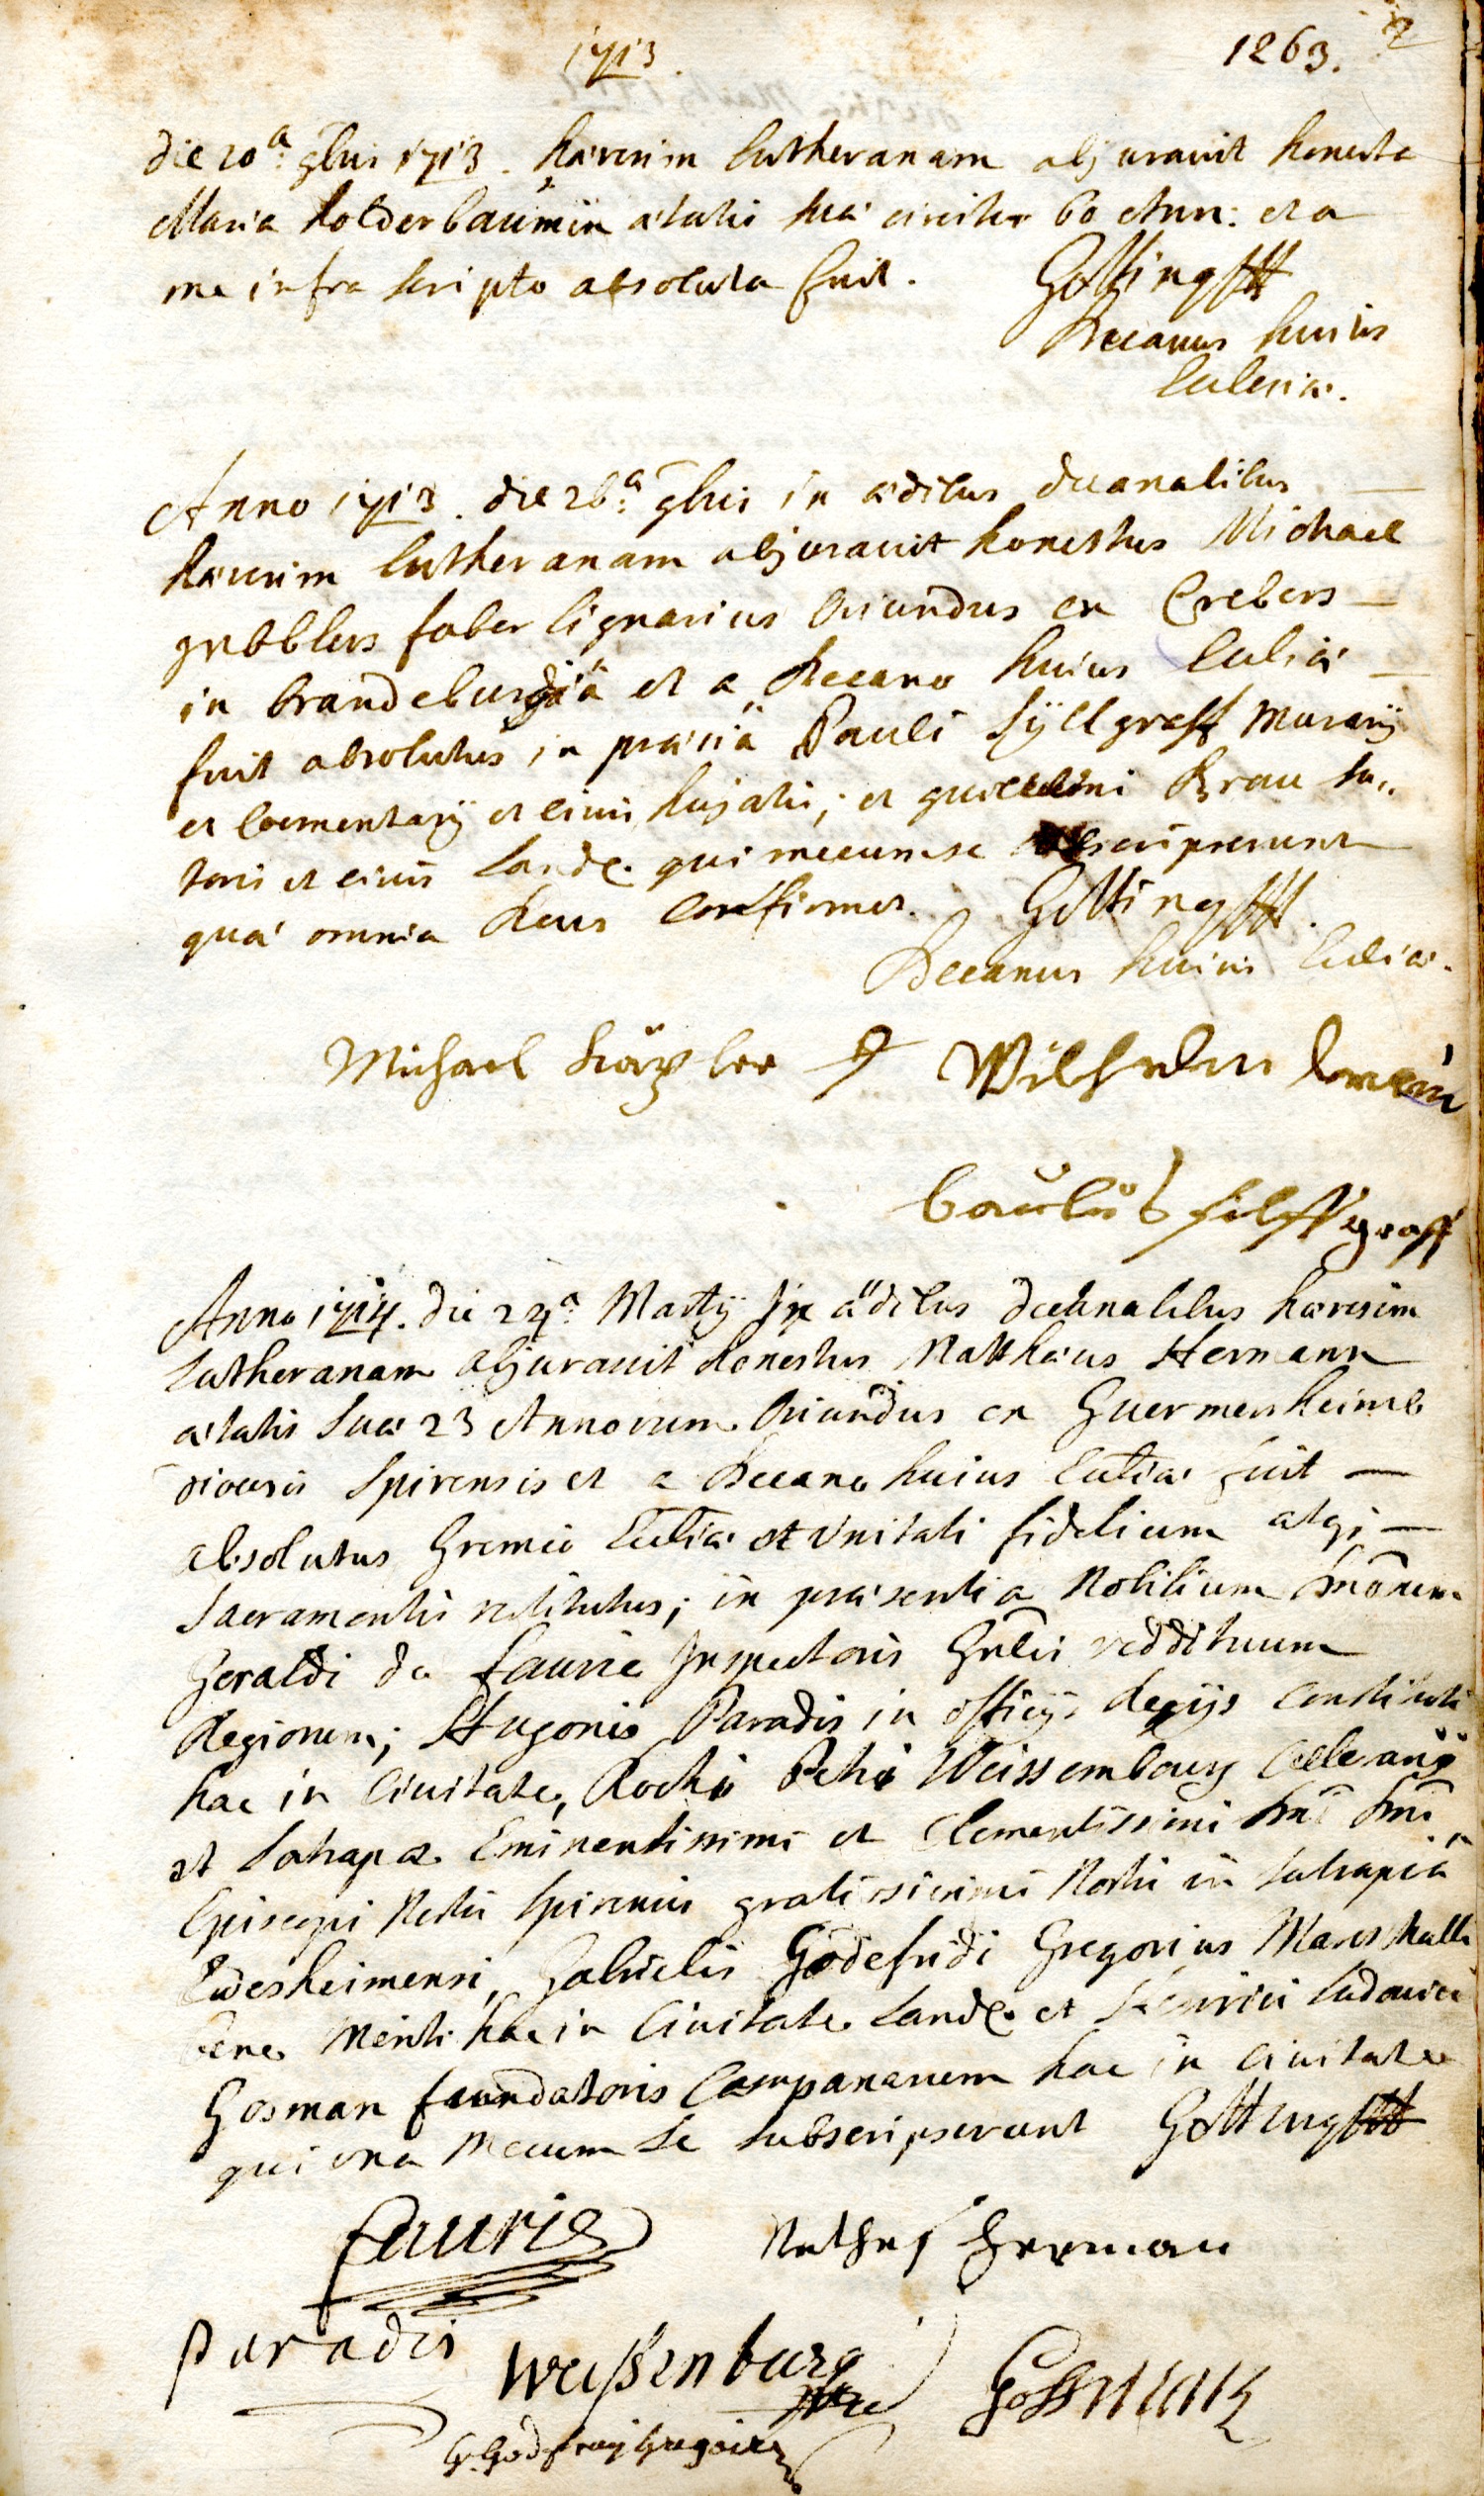 1713.
1263. 2
die 20a: 9bris 1713. hæresim lutheranam abjuravit honesta
Maria holderbaumin ætatis suæ circiter 60 Ann: et a
me infra scripto absoluta fuit. Gotting
Decanus huius
Ecclesiæ.
Anno 1713. die 26a: 9bris in ædibus decanalibus
hæresim lutheranam abjuravit honestus Michael
faber lignarius Oriundus ex Crebers
in brandeburgiâ et a Decano huius Eccliæ
fuit absolutus in præsiâ Pauli Syllgraff murarij
et coementarij et civis hujatis; et guillelmi Brau su,,
toris et civis Landæ. qui mecum se subscripserunt
quæ omnia Deus Confirmet. Gotting
Decanus huius Eccliæ.
Michael Wilhelm
baulus silffgraff
Anno 1714. die 24a: Martij In ædibus decanalibus hæresim
Lutheranam abjuravit honestus Matthæus Hermann
ætatis Suæ 23 Annorum Oriundus ex Guermersheimb
dioecesis Spirensis et a Decano huius Eccliæ fuit
absolutus Gremio Eccliæ et Unitati fidelium atqe
Sacramentis restitutus; in præsentia Nobilium Dnorum
Geraldi de Faurie Inspectoris Gnlis reddituum
Regiorum; Hugonis Paradis in officijs Regijs Constituti
hac in Civitate, Rochi Petri Weissembourg Cellerarij
et Satrapæ Eminentissimi et Clementissimi Dni Dni
Episcopi Nostri Spirensis gratiosissimi Nostri in Satrapiâ
Edesheimensi, Gabrielis Godefridi Gregorius Mareshalli
bene Meriti hac in Civitate Landæ. et Henrici Ludovici
Gosman fundatoris Campanarum hac in Civitate
qui una Mecum Se Subscripserunt Gotting
Faurie Mathes Herman
Paradis Weißenburg Gossman
G: Godefroy Gregoire